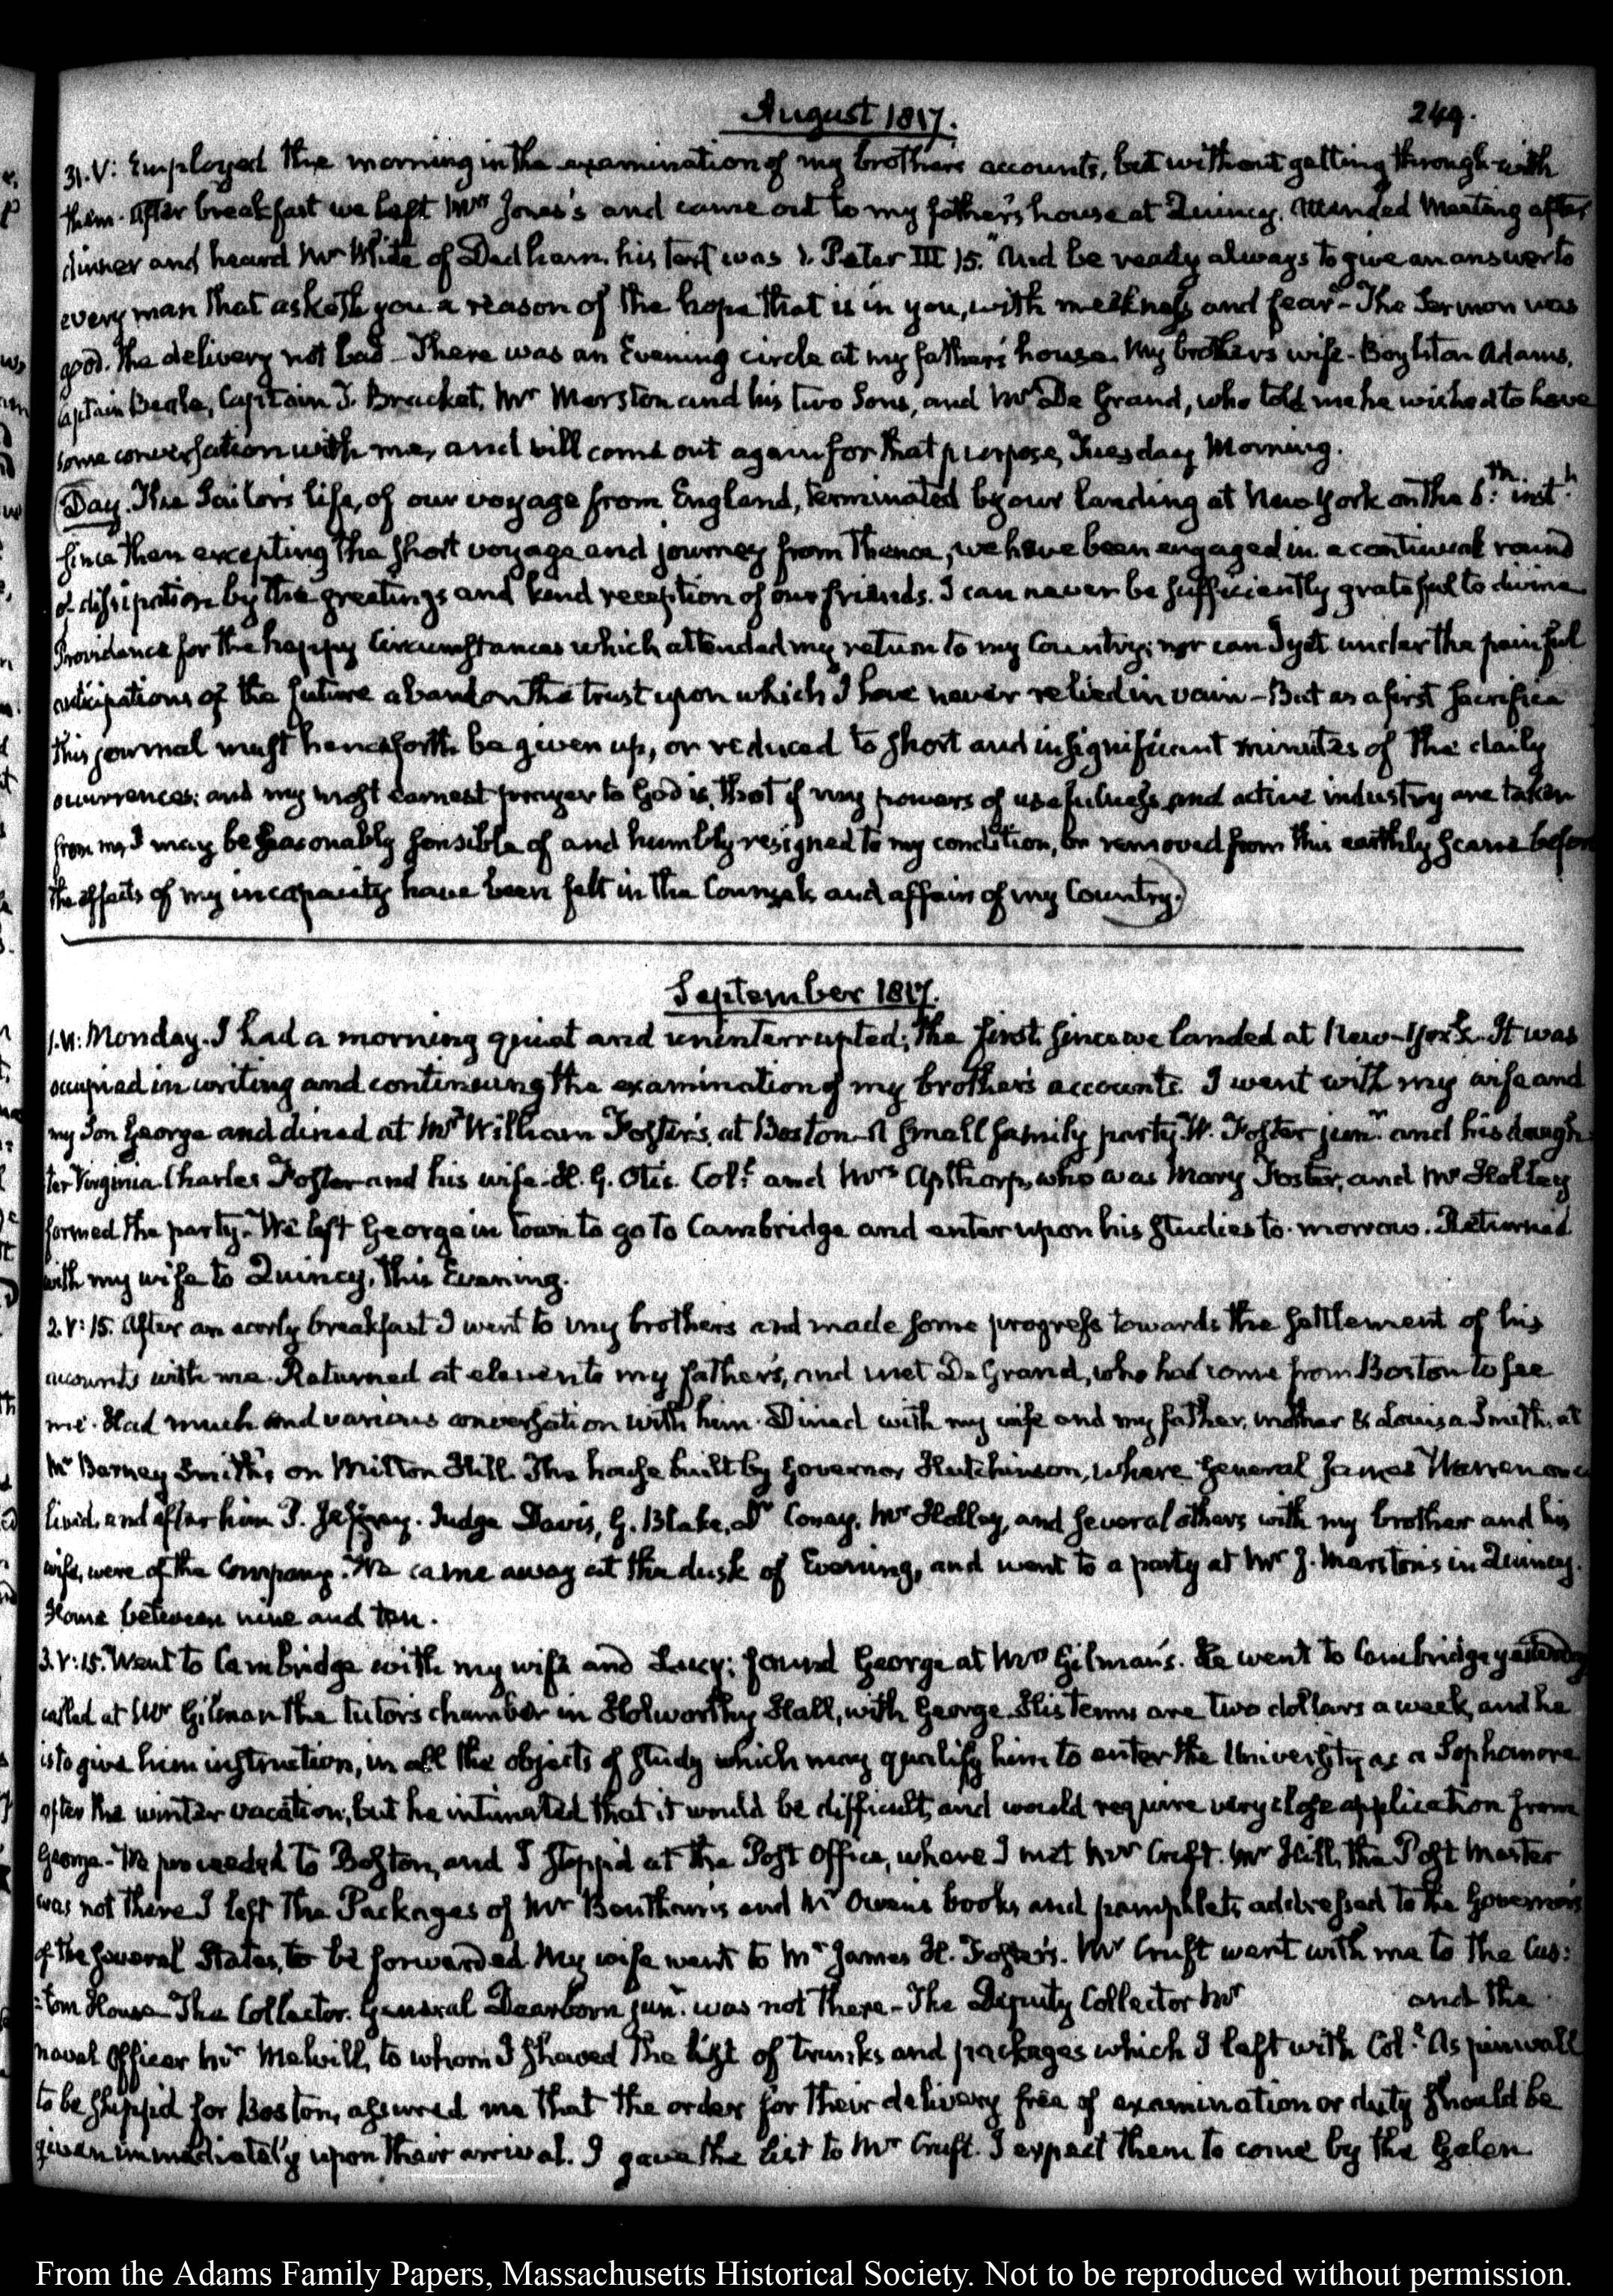 August 1817.
249.
31. V: Employed the morning in the examination of my brother's accounts, but without getting through with
them. After breakfast we left Mrs Jones's and came out to my father's house at Quincy. Attended Meeting after
dinner and heard Mr White of Dedham. his text was 1. Peter III 15. "And be ready always to give an answer to
every man that asketh you a reason of the hope that is in you, with meekness and fear" – The Sermon was
good. the delivery not bad – There was an Evening circle at my father's house. My brother's wife – Boylston Adams,
Captain Beale, Captain J. Bracket, Mr Marston and his two Sons, and Mr De Grand, who told me he wished to have
some conversation with me, and will come out again for that purpose, Tuesday Morning.
Day. The Sailor's life, of our voyage from England, terminated by our landing at New York on the 6th. inst.
Since then excepting the short voyage and journey from thence, we have been engaged in a continual round
of dissipation by the greetings and kind reception of our friends. I can never be sufficiently grateful to divine
Providence for the happy Circumstances which attended my return to my Country; nor can I yet under the painful
anticipations of the future abandon the trust upon which I have never relied in vain – But as a first sacrifice
this journal must henceforth be given up, or reduced to short and insignificant minutes of the daily
occurrences; and my most earnest prayer to God is, that if my powers of usefulness and active industry are taken
from me, I may be seasonably sensible of and humbly resigned to my condition, or removed from this earthly scene before
the effects of my incapacity have been felt in the Counsels and affairs of my Country.)
September 1817.
1. VI: Monday. I had a morning quiet and uninterrupted; the first since we landed at New-York. It was
occupied in writing and continuing the examination of my brother's accounts. I went with my wife and
my Son George and dined at Mr William Foster's, at Boston – A small family party. W. Foster junr. and his daugh-
ter Virginia. Charles Foster and his wife. H. G. Otis. Coll. and Mrs Apthorp, who was Mary Foster, and Mr Holley
formed the party. We left George in town to go to Cambridge and enter upon his studies to-morrow. Returned
with my wife to Quincy, this Evening.
2. V: 15. After an early breakfast I went to my brother's and made some progress towards the settlement of his
accounts with me. Returned at eleven to my father's, and met De Grand, who had come from Boston to see
me. Had much and various conversation with him. Dined with my wife and my father, mother & Louisa Smith, at
Mr Barney Smith's, on Milton Hill. The house built by Governor Hutchinson, where General James Warren once
lived, and after him J. Jeffrey. Judge Davis, G. Blake, Mr Holley, and several others with my brother and his
wife, were of the Company. We came away at the dusk of Evening, and went to a party at Mr J. Marston's in Quincy.
Home between nine and ten.
3. V: 15. Went to Cambridge with my wife and Lucy; found George at Mrs Gilman's. He went to Cambridge yesterday
called at Mr Gilman the tutor's chamber in Holworthy Hall, with George. His terms are two dollars a week, and he
is to give him instruction, in all the objects of study which may qualify him to enter the University as a Sophomore
after the winter vacation; but he intimated that it would be difficult, and would require very close application from
George – We proceeded to Boston, and I stopp'd at the Post Office, where I met Mr Cruft. Mr Hill, the Post Master
was not there. I left the Packages of Mr Bentham's and Mr Owen's books and pamphlets addressed to the Governors
of the several States, to be forwarded. My wife went to Mr James H. Foster's. Mr Cruft went with me to the Cus:
:tom House – The Collector. General Dearborn junr. was not there – The Deputy Collector Mr and the
naval Officer Mr Melvill, to whom I shewed the list of trunks and packages which I left with Coll. Aspinwall
to be shipp'd for Boston, assured me that the order for their delivery free of examination or duty should be
given immediately upon their arrival. I gave the list to Mr Cruft. I expect them to come by the Galen
From the Adams Family Papers, Massachusetts Historical Society. Not to be reproduced without permission.